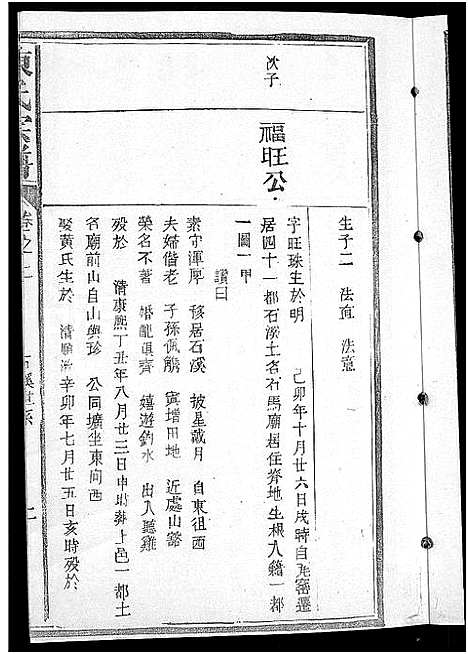 生子二 法直 法意
次子
福旺公
字旺珠生於明 己卯年十月廿六日戌時自 遷
居四十一都石溪土名石馬廟居住齊地生根入籍一都
一圖一甲
讚曰
素守渾厚 移居石溪 披星戴月 自東徂西
夫婦偕老 子孫佩觿 寅增田地 近處山谿
榮名不著 婚龍眞齊 嬉遊釣水 出入聽雞
歿於 清康熙丁丑年八月廿三日申時葬上邑一都土
名廟前山自山與珍 公同壙坐東向西
娶黄氏生於 清順治辛卯年七月廿五日亥時歿於
氏宗譜
卷之二
石溪世系
二